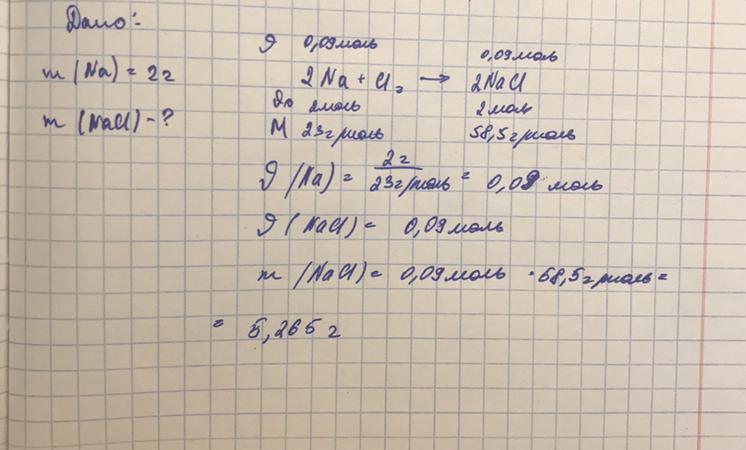 Дано:
m (Na) = 2г
m (NaCl) - ?
ν 0,09моль 0,09моль
2Na + Cl₂ → 2NaCl
ν₀ 2моль 2мол
M 23г/моль 58,5г/моль
ν (Na) = 2г / 23г/моль = 0,09 моль
ν (NaCl) = 0,09моль
m (NaCl) = 0,09моль · 58,5г/моль =
= 5,265г